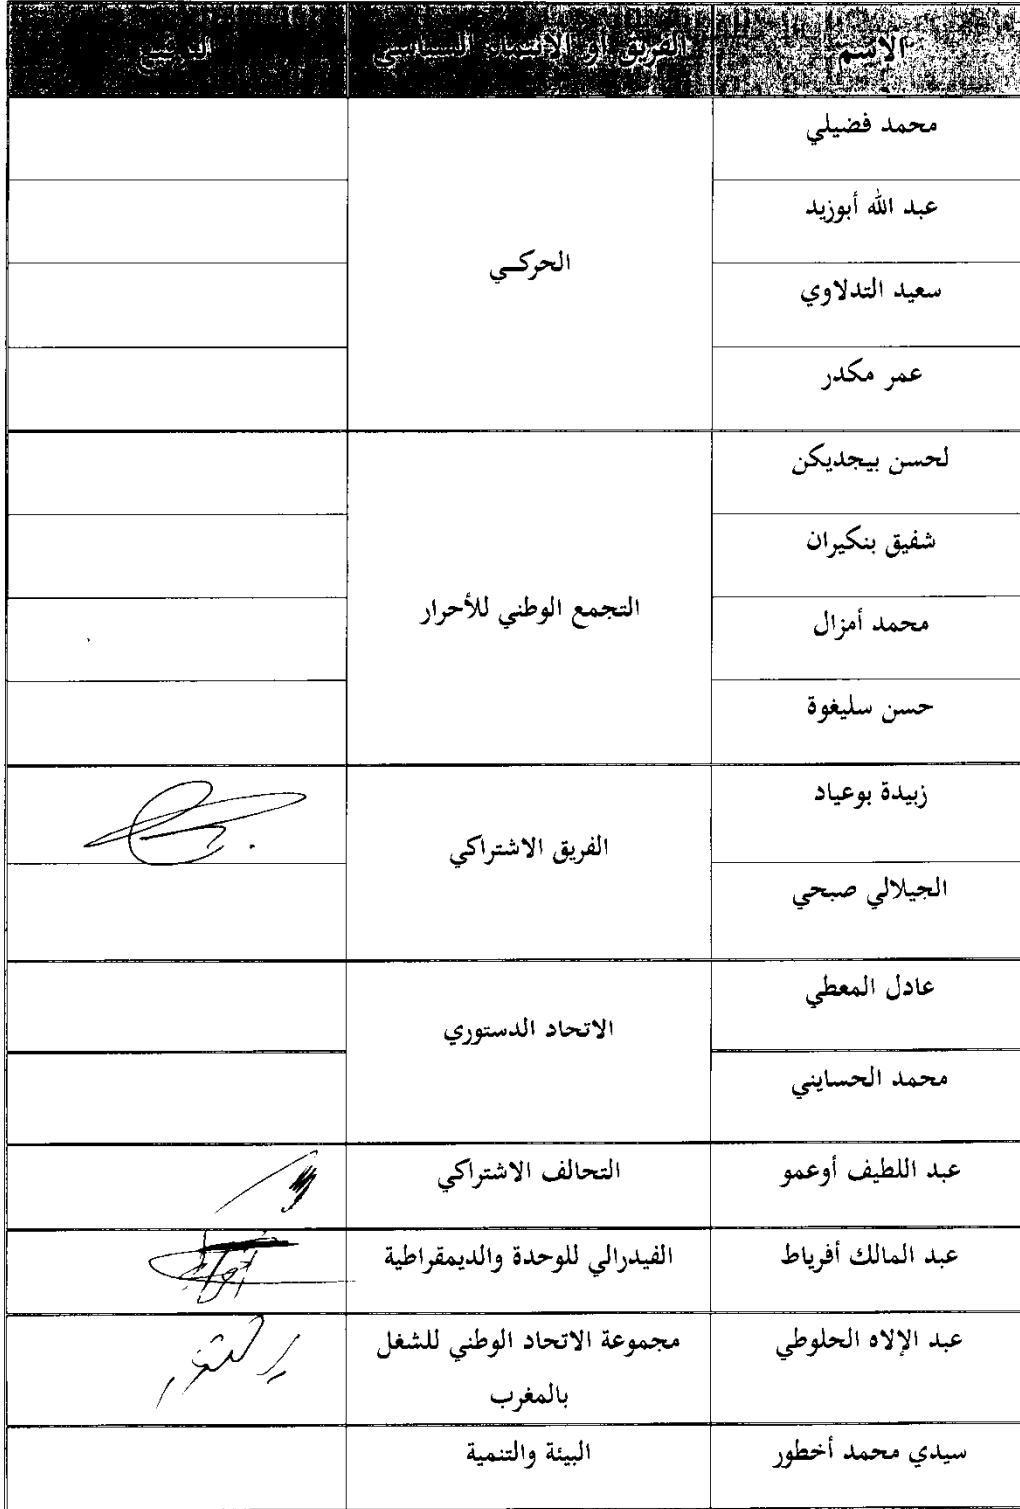 الإسم الفريق أو الانتماء السياسي التوقيع
محمد فضيلي
عبد الله أبوزيد
الحركــي
سعيد التدلاوي
عمر مكدر
لحسن بيجديكن
شفيق بنكيران
التجمع الوطني للأحرار
محمد أمزال
حسن سليغوة
زبيدة بوعياد
الفريق الاشتراكي
الجيلالي صبحي
عادل المعطي
الاتحاد الدستوري
محمد الحسايني
عبد اللطيف أوعمو التحالف الاشتراكي
عبد المالك أفرياط الفيدرالي للوحدة والديمقراطية
عبد الإلاه الحلوطي مجموعة الاتحاد الوطني للشغل
بالمغرب
سيدي محمد أخطور البيئة والتنمية